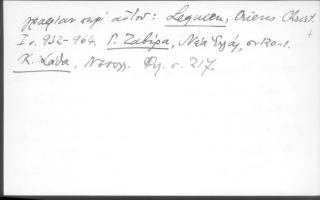 γραφίαν περὶ αὐτοῦ: Lequien, Oriens Christ.
I σ. 952-964. Γ. Ζαβίρα, Νέα Ἑλλάς, σ.
Κ. Σάθα, Νεοελ. Φιλ. σ. 217.